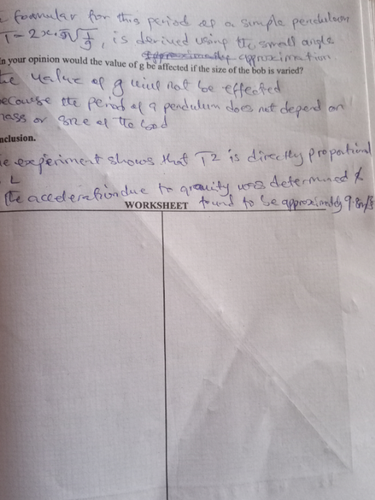 foamular for this period of a simple pendulum
T = 2x π √ L/g , is derived using the small angle
approximately approximation
n your opinion would the value of g be affected if the size of the bob is varied?
he value of g will not be effected
because the period of a pendulum does not depend on
mass or size of the
nclusion.
e experiment shows that T2 is directly proportional
L
The acceleration due to gravity was determined &
WORKSHEET found to be approximately 9.8m/s